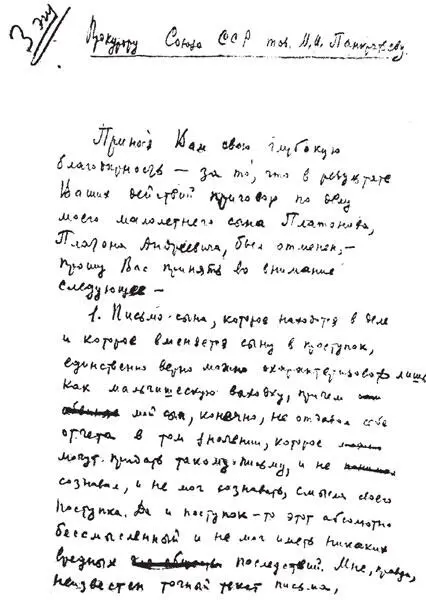 3 экз
Прокурору Союза ССР тов. М.И. Панкратьеву.
Приношу Вам свою глубокую
благодарность — за то, что в результате
Ваших действий приговор по делу
моего малолетнего сына Платонова,
Платона Андреевича, был отменен, —
прошу Вас принять во внимание
следующее —
1. Письмо сына, которое находится в деле
и которое вменяется сыну в проступок,
единственно верно можно охарактеризовать лишь
как мальчишескую выходку, причем
мой сын, конечно, не отдавал себе
отчета в том значении, которое
могут придать такому письму, и не
сознавал, и не мог сознавать, смысла своего
поступка. Да и поступок-то этот абсолютно
бессмысленный и не мог иметь никаких
вредных последствий. Мне, правда,
неизвестен точный текст письма,